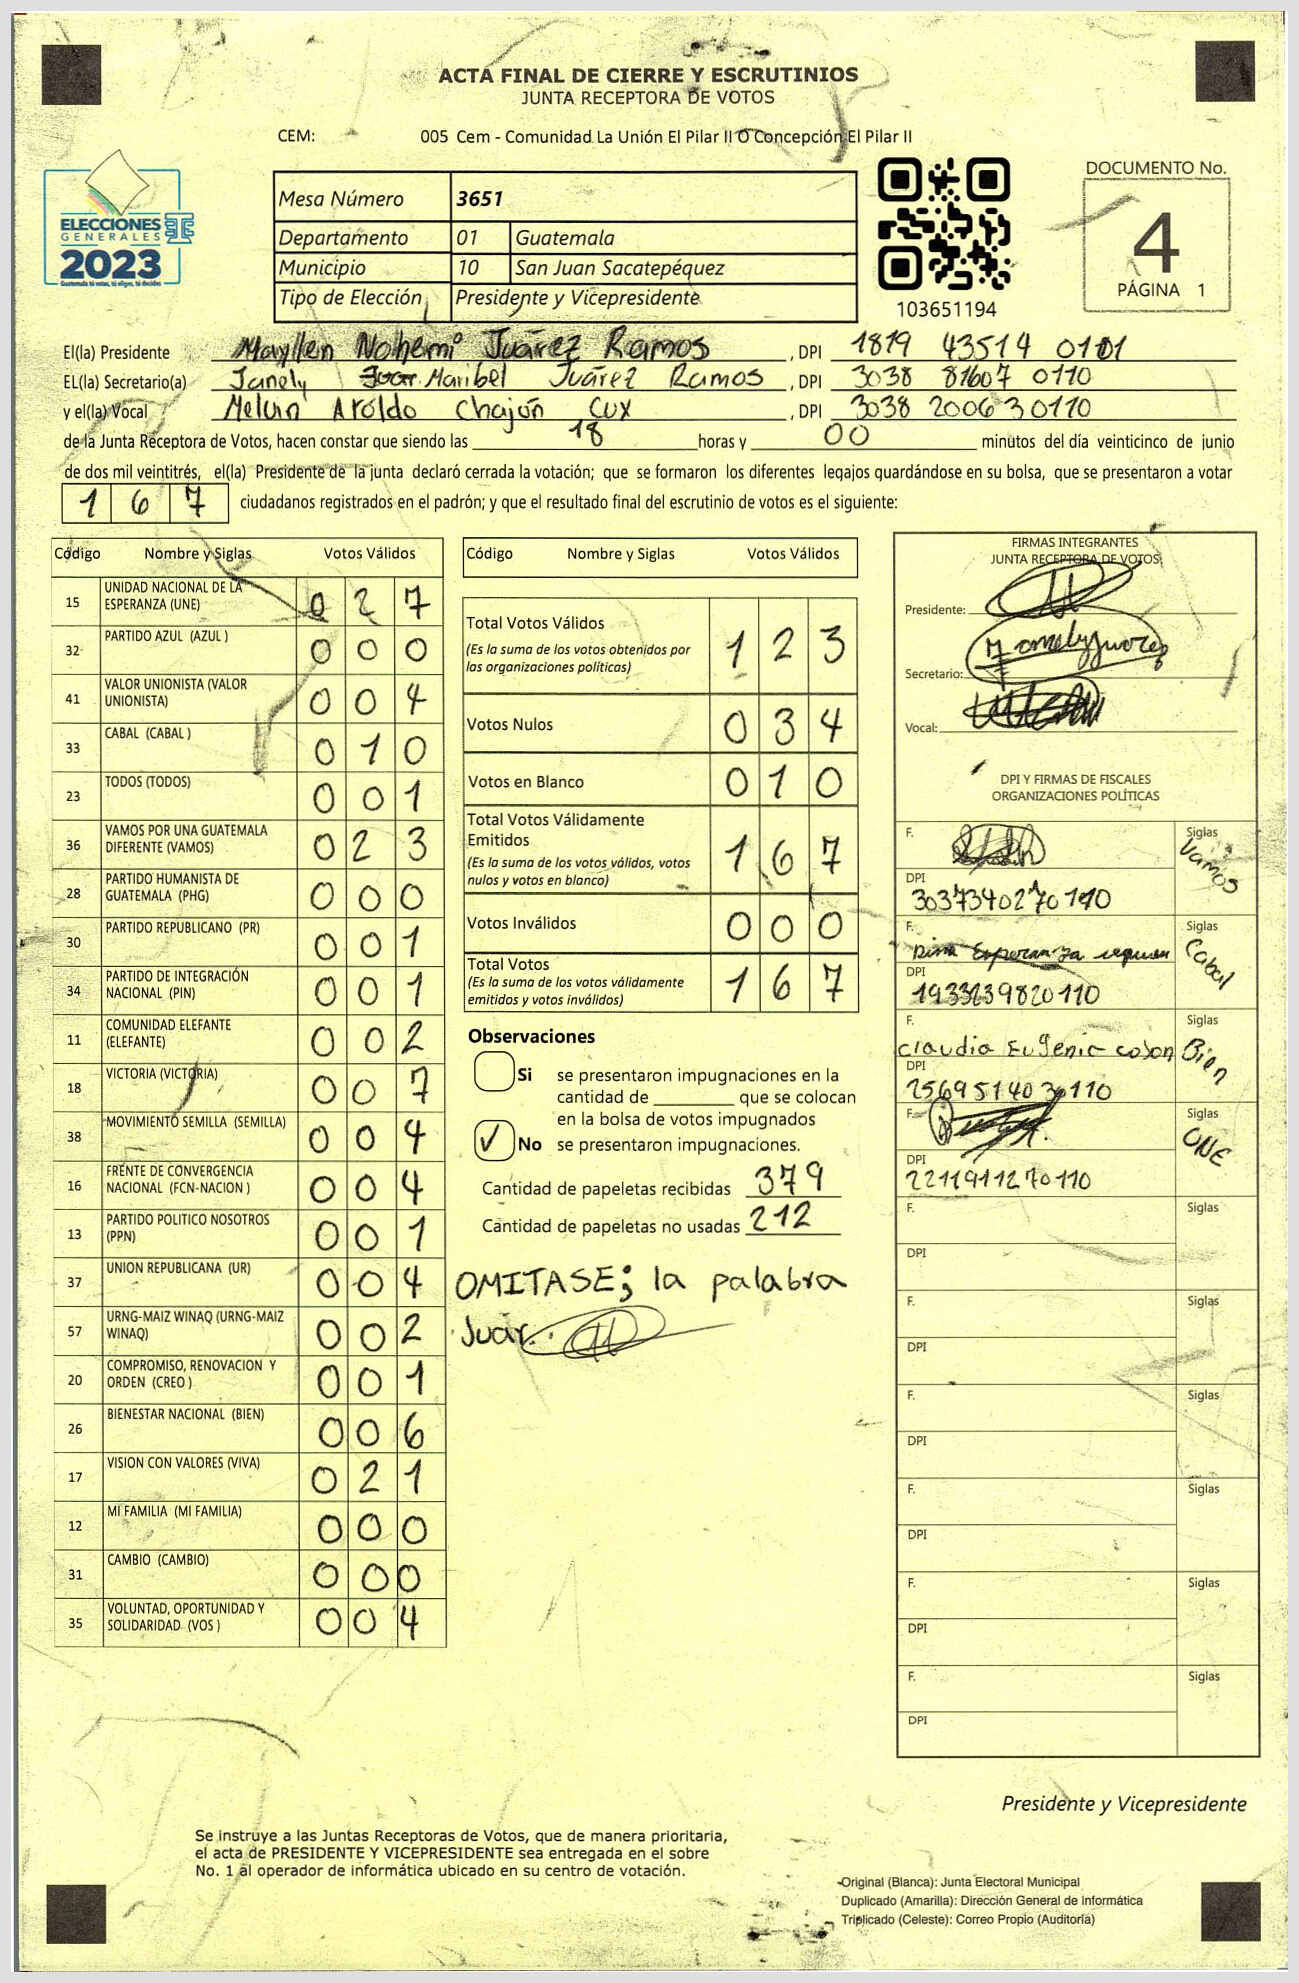 ACTA FINAL DE CIERRE Y ESCRUTINIOS
JUNTA RECEPTORA DE VOTOS
CEM: 005 Cem - Comunidad La Unión El Pilar II O Concepción El Pilar II
DOCUMENTO No.
4
PÁGINA 1
ELECCIONES
GENERALES
2023
Guatemala tú votas, tú eliges, tú decides
Mesa Número 3651
Departamento 01 Guatemala
Municipio 10 San Juan Sacatepéquez
Tipo de Elección Presidente y Vicepresidente
103651194
El(la) Presidente Mayllen Nohemi Juárez Ramos, DPI 1819 43514 0101
EL(la) Secretario(a) Janely Juar Maribel Juárez Ramos, DPI 3038 81607 0110
y el(la) Vocal Melvin Aroldo Chajón Cux, DPI 3038 20063 0110
de la Junta Receptora de Votos, hacen constar que siendo las 18 horas y 00 minutos del día veinticinco de junio
de dos mil veintitrés, el(la) Presidente de la junta declaró cerrada la votación; que se formaron los diferentes legajos guardándose en su bolsa, que se presentaron a votar
167 ciudadanos registrados en el padrón; y que el resultado final del escrutinio de votos es el siguiente:
Código Nombre y Siglas Votos Válidos
15 UNIDAD NACIONAL DE LA ESPERANZA (UNE) 0 2 7
32 PARTIDO AZUL (AZUL ) 0 0 0
41 VALOR UNIONISTA (VALOR UNIONISTA) 0 0 4
33 CABAL (CABAL ) 0 1 0
23 TODOS (TODOS) 0 0 1
36 VAMOS POR UNA GUATEMALA DIFERENTE (VAMOS) 0 2 3
28 PARTIDO HUMANISTA DE GUATEMALA (PHG) 0 0 0
30 PARTIDO REPUBLICANO (PR) 0 0 1
34 PARTIDO DE INTEGRACIÓN NACIONAL (PIN) 0 0 1
11 COMUNIDAD ELEFANTE (ELEFANTE) 0 0 2
18 VICTORIA (VICTORIA) 0 0 7
38 MOVIMIENTO SEMILLA (SEMILLA) 0 0 4
16 FRENTE DE CONVERGENCIA NACIONAL (FCN-NACION ) 0 0 4
13 PARTIDO POLITICO NOSOTROS (PPN) 0 0 1
37 UNION REPUBLICANA (UR) 0 0 4
57 URNG-MAIZ WINAQ (URNG-MAIZ WINAQ) 0 0 2
20 COMPROMISO, RENOVACION Y ORDEN (CREO ) 0 0 1
26 BIENESTAR NACIONAL (BIEN) 0 0 6
17 VISION CON VALORES (VIVA) 0 2 1
12 MI FAMILIA (MI FAMILIA) 0 0 0
31 CAMBIO (CAMBIO) 0 0 0
35 VOLUNTAD, OPORTUNIDAD Y SOLIDARIDAD (VOS ) 0 0 4
Código Nombre y Siglas Votos Válidos
Total Votos Válidos 1 2 3
(Es la suma de los votos obtenidos por
las organizaciones políticas)
Votos Nulos 0 3 4
Votos en Blanco 0 1 0
Total Votos Válidamente
Emitidos 1 6 7
(Es la suma de los votos válidos, votos
nulos y votos en blanco)
Votos Inválidos 0 0 0
Total Votos 1 6 7
(Es la suma de los votos válidamente
emitidos y votos inválidos)
Observaciones
Si se presentaron impugnaciones en la
cantidad de ________ que se colocan
en la bolsa de votos impugnados
✓ No se presentaron impugnaciones.
Cantidad de papeletas recibidas 379
Cantidad de papeletas no usadas 212
OMITASE; la palabra
Juar..
FIRMAS INTEGRANTES
JUNTA RECEPTORA DE VOTOS
Presidente:
Secretario:
Vocal:
DPI Y FIRMAS DE FISCALES
ORGANIZACIONES POLÍTICAS
F. Siglas Vamos
DPI 3037340270110
F. Dina Esperanza Siglas Cabal
DPI 1933239820110
F. Claudia Eugenia Siglas Bien
DPI 2569514030110
F. Siglas UNE
DPI 2211911270110
F. Siglas
DPI
F. Siglas
DPI
F. Siglas
DPI
F. Siglas
DPI
F. Siglas
DPI
F. Siglas
DPI
Presidente y Vicepresidente
Se instruye a las Juntas Receptoras de Votos, que de manera prioritaria,
el acta de PRESIDENTE Y VICEPRESIDENTE sea entregada en el sobre
No. 1 al operador de informática ubicado en su centro de votación.
Original (Blanca): Junta Electoral Municipal
Duplicado (Amarilla): Dirección General de Informática
Triplicado (Celeste): Correo Propio (Auditoría)